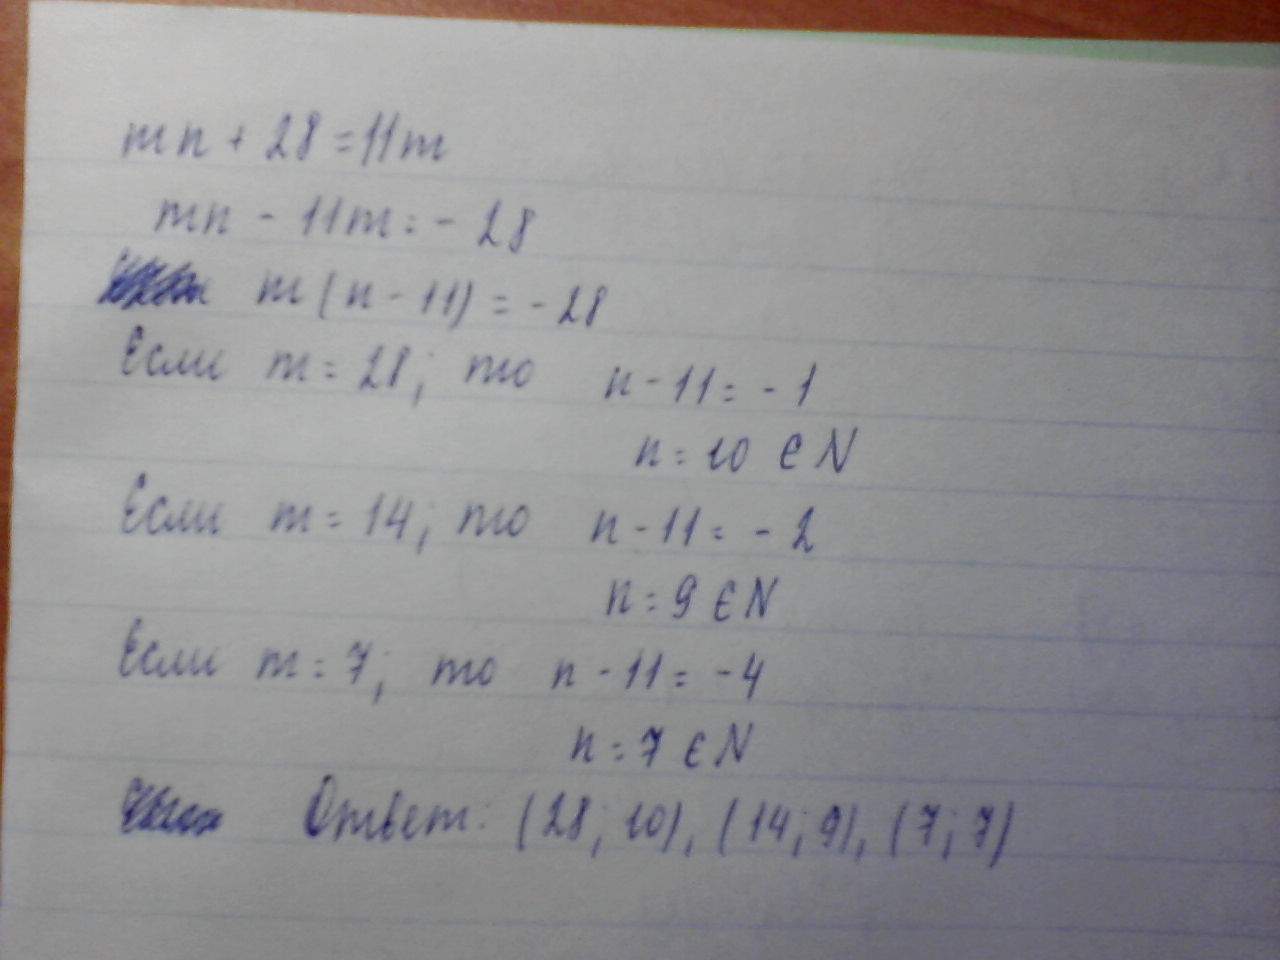 mn + 28 = 11m
mn - 11m = - 28
m (n - 11) = - 28
Если m = 28; то n - 11 = - 1
n = 10 ∈ N
Если m = 14; то n - 11 = - 2
n = 9 ∈ N
Если m = 7; то n - 11 = - 4
n = 7 ∈ N
Ответ: (28; 10), (14; 9), (7; 7)